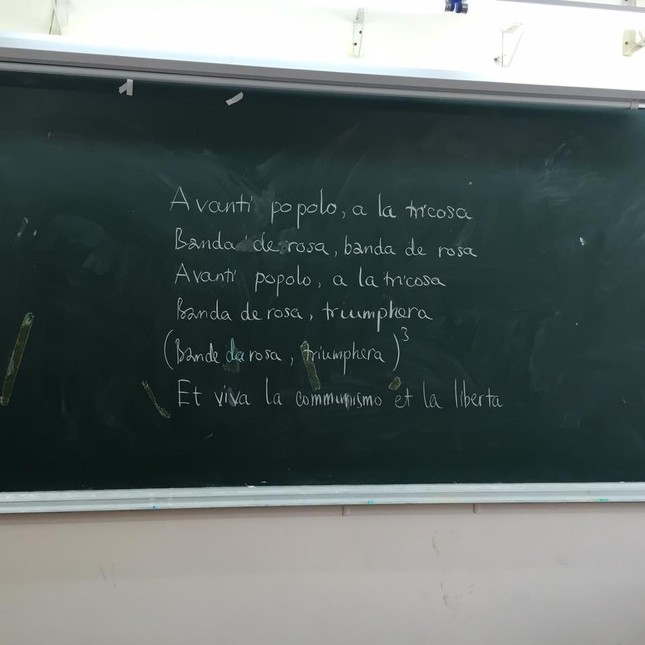 Avanti popolo, a la tricosa
Banda de rosa, banda de rosa
Avanti popolo, a la tricosa
Banda de rosa, triumphera
(Bande da rosa, triumphera)³
Et viva la communismo et la liberta